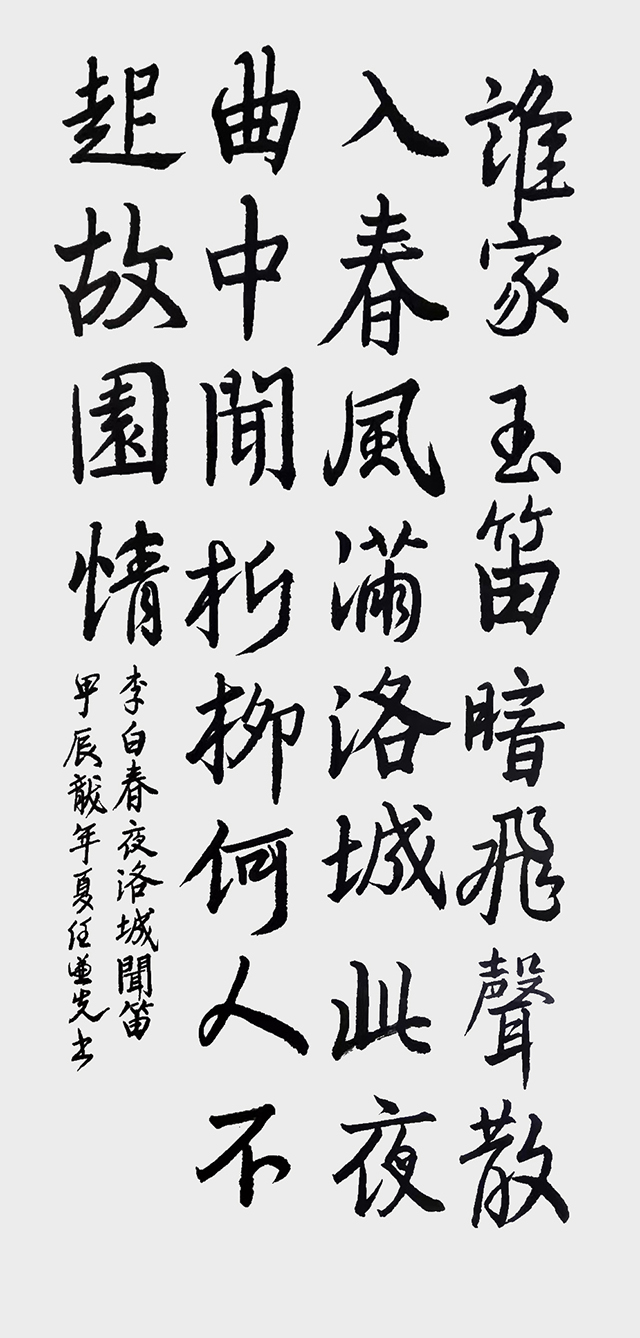 誰家玉笛暗飛聲散
入春風滿洛城此夜
曲中聞折柳何人不
起故園情
李白春夜洛城聞笛
甲辰龍年夏任謙先书